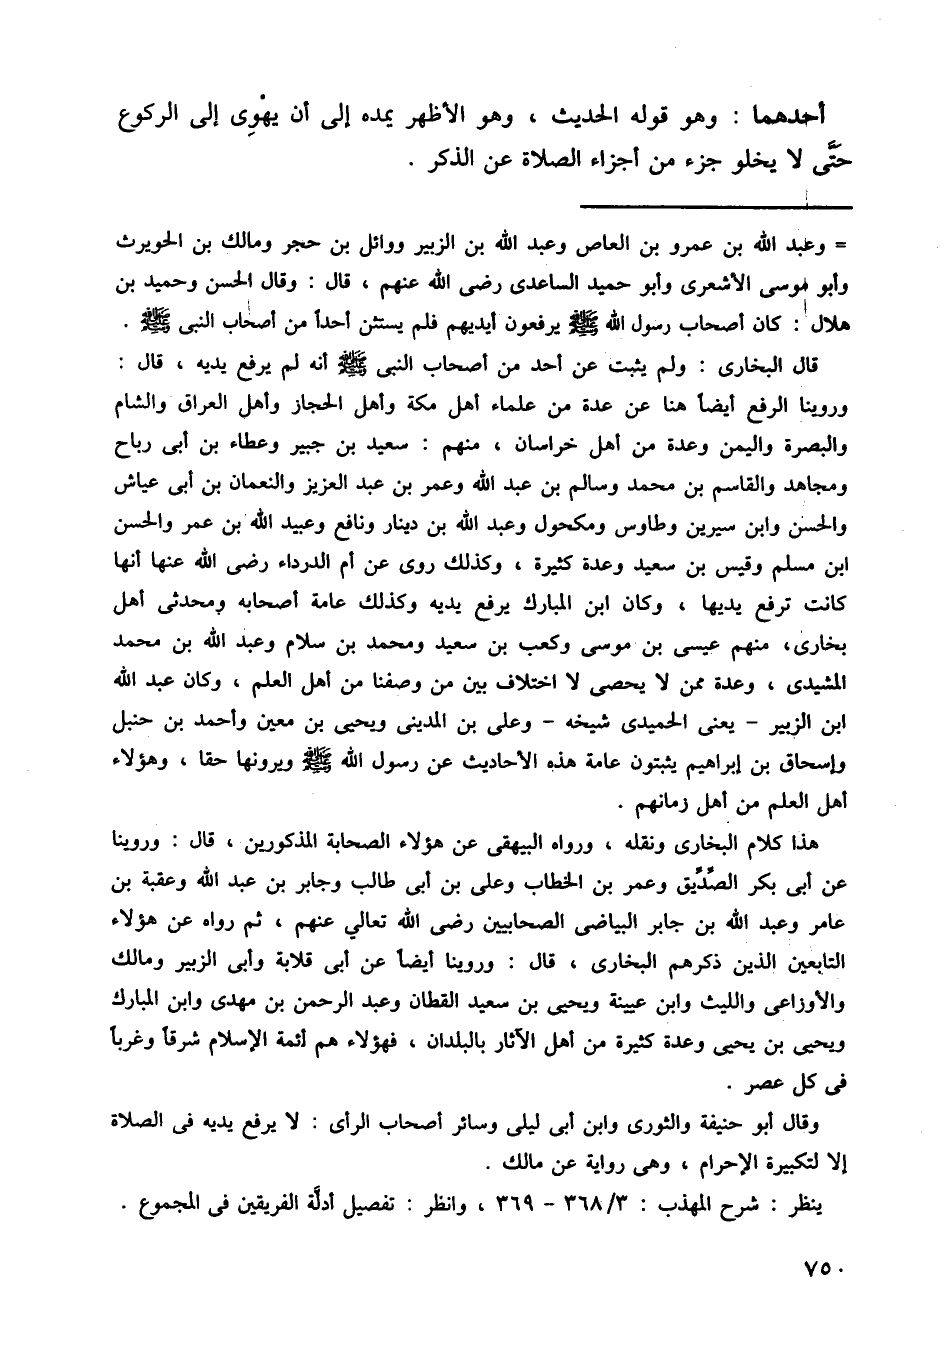 أحدهما : وهو قوله الحديث ، وهو الأظهر يمده إلى أن يهْوِى إلى الركوع
حتَّى لا يخلو جزء من أجزاء الصلاة عن الذكر .
= وعبد الله بن عمرو بن العاص وعبد الله بن الزبير ووائل بن حجر ومالك بن الحويرث
وأبو موسى الأشعرى وأبو حميد الساعدى رضى الله عنهم ، قال : وقال الحسن وحميد بن
هلال : كان أصحاب رسول الله ﷺ يرفعون أيديهم فلم يستثن أحداً من أصحاب النبى ﷺ .
قال البخارى : ولم يثبت عن أحد من أصحاب النبى ﷺ أنه لم يرفع يديه ، قال :
وروينا الرفع أيضاً هنا عن عدة من علماء أهل مكة وأهل الحجاز وأهل العراق والشام
والبصرة واليمن وعدة من أهل خراسان ، منهم : سعيد بن جبير وعطاء بن أبى رباح
ومجاهد والقاسم بن محمد وسالم بن عبد الله وعمر بن عبد العزيز والنعمان بن أبى عياش
والحسن وابن سيرين وطاوس ومكحول وعبد الله بن دينار ونافع وعبيد الله بن عمر والحسن
ابن مسلم وقيس بن سعيد وعدة كثيرة ، وكذلك روى عن أم الدرداء رضى الله عنها أنها
كانت ترفع يديها ، وكان ابن المبارك يرفع يديه وكذلك عامة أصحابه ومحدثى أهل
بخارى، منهم عيسى بن موسى وكعب بن سعيد ومحمد بن سلام وعبد الله بن محمد
المشيدى ، وعدة ممن لا يحصى لا اختلاف بين من وصفنا من أهل العلم ، وكان عبد الله
ابن الزبير - يعنى الحميدى شيخه - وعلى بن المدينى ويحيى بن معين وأحمد بن حنبل
وإسحاق بن إبراهيم يثبتون عامة هذه الأحاديث عن رسول الله ﷺ ويرونها حقا ، وهؤلاء
أهل العلم من أهل زمانهم .
هذا كلام البخارى ونقله ، ورواه البيهقى عن هؤلاء الصحابة المذكورين ، قال : وروينا
عن أبى بكر الصِّدِّيق وعمر بن الخطاب وعلى بن أبى طالب وجابر بن عبد الله وعقبة بن
عامر وعبد الله بن جابر البياضى الصحابيين رضى الله تعالي عنهم ، ثم رواه عن هؤلاء
التابعين الذين ذكرهم البخارى ، قال : وروينا أيضاً عن أبى قلابة وأبى الزبير ومالك
والأوزاعى والليث وابن عيينة ويحيى بن سعيد القطان وعبد الرحمن بن مهدى وابن المبارك
ويحيى بن يحيى وعدة كثيرة من أهل الآثار بالبلدان ، فهؤلاء هم أئمة الإسلام شرقاً وغرباً
فى كل عصر .
وقال أبو حنيفة والثورى وابن أبى ليلى وسائر أصحاب الرأى : لا يرفع يديه فى الصلاة
إلا لتكبيرة الإحرام ، وهى رواية عن مالك .
ينظر : شرح المهذب : ٣٦٨/٣ - ٣٦٩ ، وانظر : تفصيل أدلَّة الفريقين فى المجموع .
٧٥٠